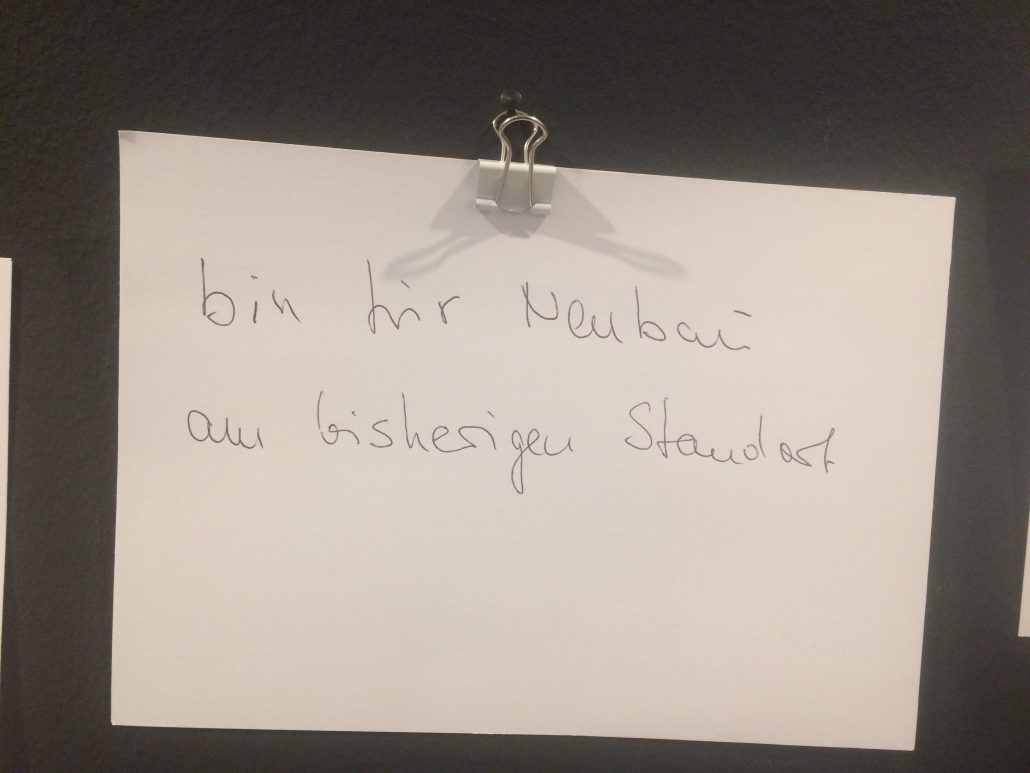 bin für Neubau
am bisherigen Standort